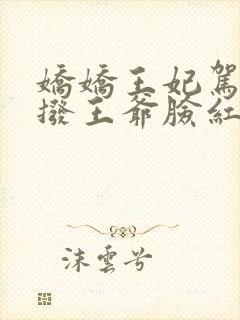 嬌嬌王妃駕
撥王爺臉紅
沫雲兮